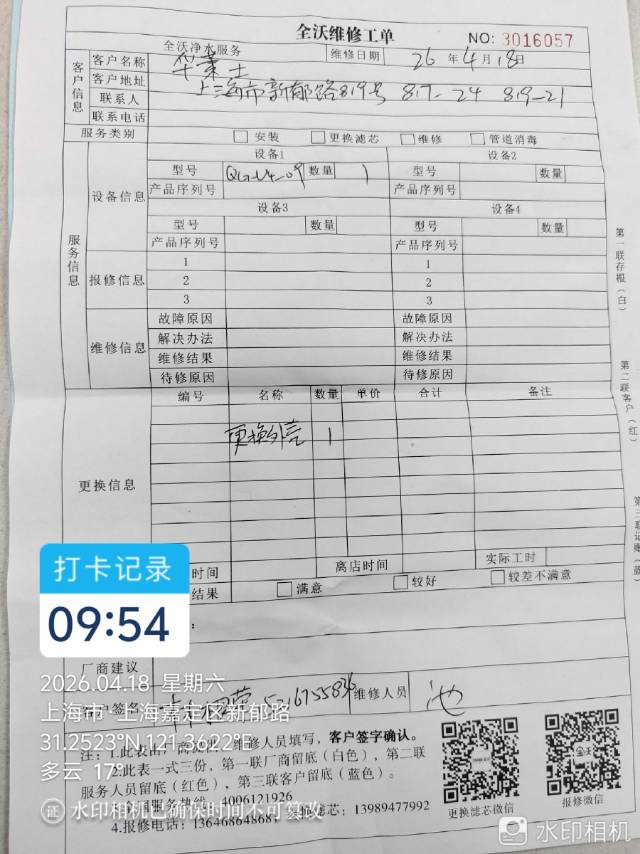 全沃维修工单
NO: 3016057
全沃净水服务
维修日期 26 年 4 月 18 日
客户信息
客户名称 华莱士
客户地址 上海市新郁路819号 817-24 819-21
联系人
联系电话
服务类别 安装 更换滤芯 维修 管道消毒
服务信息
设备信息
设备1 设备2
型号 数量 1 型号 数量
产品序列号 产品序列号
设备3 设备4
型号 数量 型号 数量
产品序列号 产品序列号
报修信息
1 1
2 2
3 3
维修信息
故障原因 故障原因
解决办法 解决办法
维修结果 维修结果
待修原因 待修原因
更换信息
编号 名称 数量 单价 合计 备注
更换外壳 1
时间 离店时间 实际工时
结果 满意 较好 较差不满意
厂商建议
客户签名 维修人员 池
注：1.此表由厂商 维修人员填写，客户签字确认。
2.此表一式三份，第一联厂商留底（白色），第二联
服务人员留底（红色），第三联客户留底（蓝色）。
服务热线 4006121926
滤芯：13989477992
4.报修电话：13646864868
更换滤芯微信
报修微信
第一联存根（白）
第二联客户（红）
打卡记录
09:54
2026.04.18 星期六
上海市·上海嘉定区新郁路
31.2523°N,121.3622°E
多云 17°
证 水印相机已确保时间不可篡改
水印相机